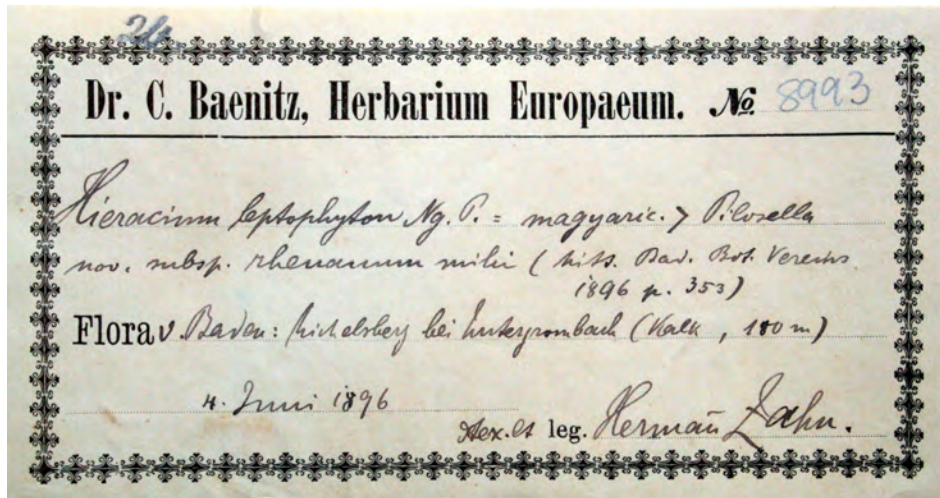 24.
Dr. C. Baenitz, Herbarium Europaeum. No. 8993
Hieracium leptophyton Ng. P. = magyaric. > Pilosella
nov. subsp. rhenanum mihi (Mitt. Bad. Bot. Vereins
1896 p. 353)
Flora v. Baden: Michelsberg bei Untergrombach (Kalk, 180 m)
4. Juni 1896
et leg. Hermañ Zahn.